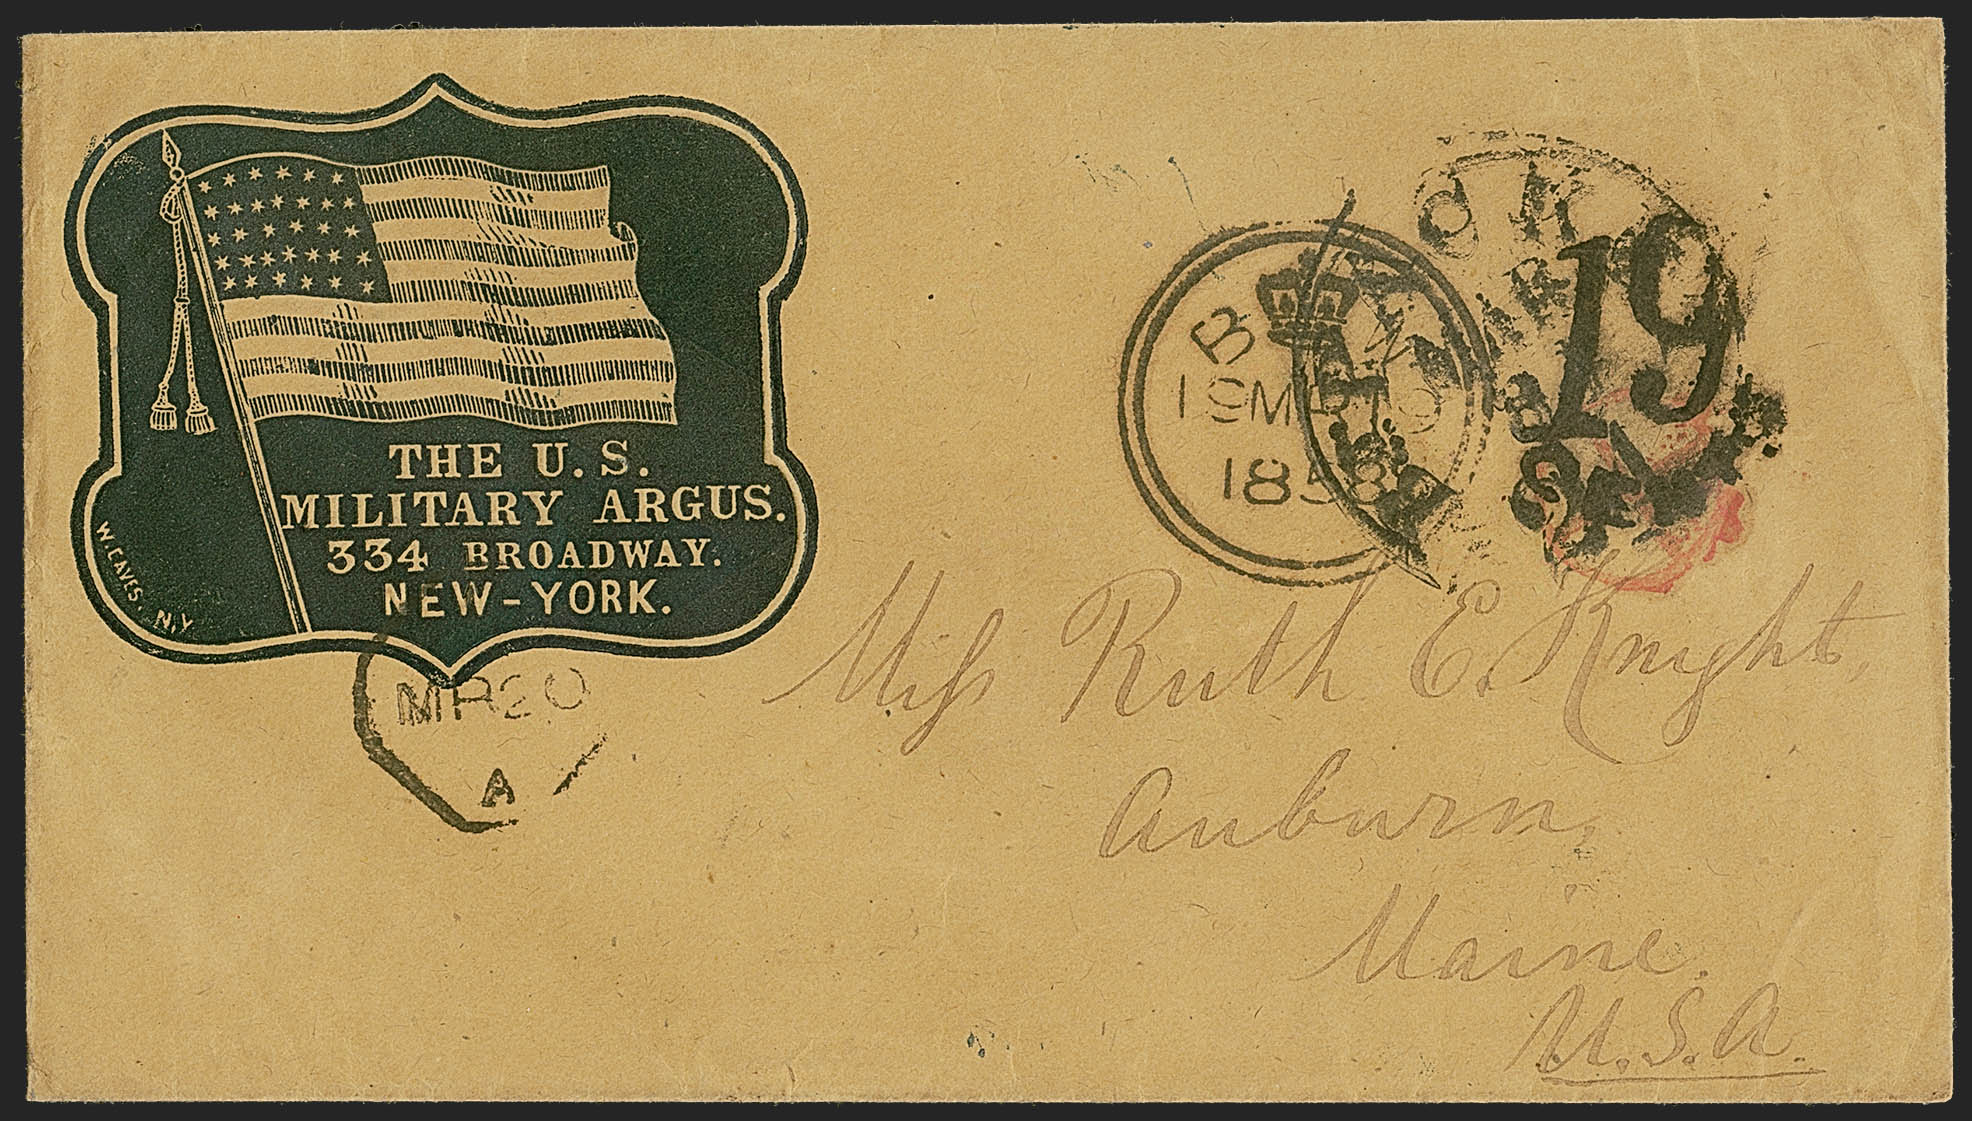 THE U.S.
MILITARY ARGUS.
334 BROADWAY.
NEW-YORK.
W. EAVES, N.Y
B
1858
19
MR20
A
Miss Ruth E. Knight,
Auburn,
Maine.
U.S.A.